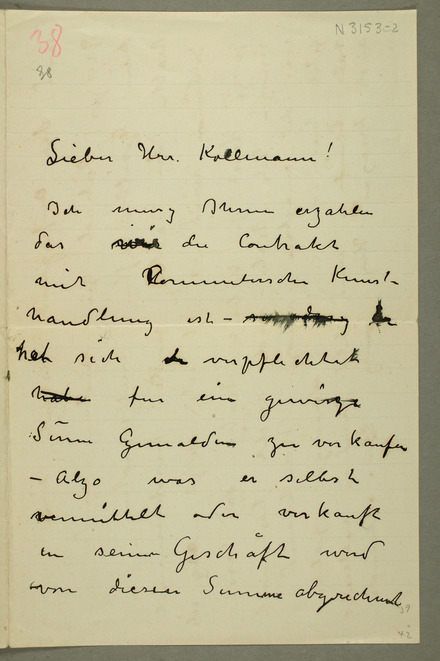 38
N 3153-2
38
Lieber Herr. Kollmann!
Ich muss Ihnen erzahlen
das die Contrakt
mit Commeterschen Kunst-
handlung ist - Er
hat sich verpflichtet
habe fur ein gewisze
Summe Gemalden zu verkaufen
- Alzo was er selbst
vermittelt oder verkauft
in seine Geschäft wird
von diesen Summe abgerechnet
42